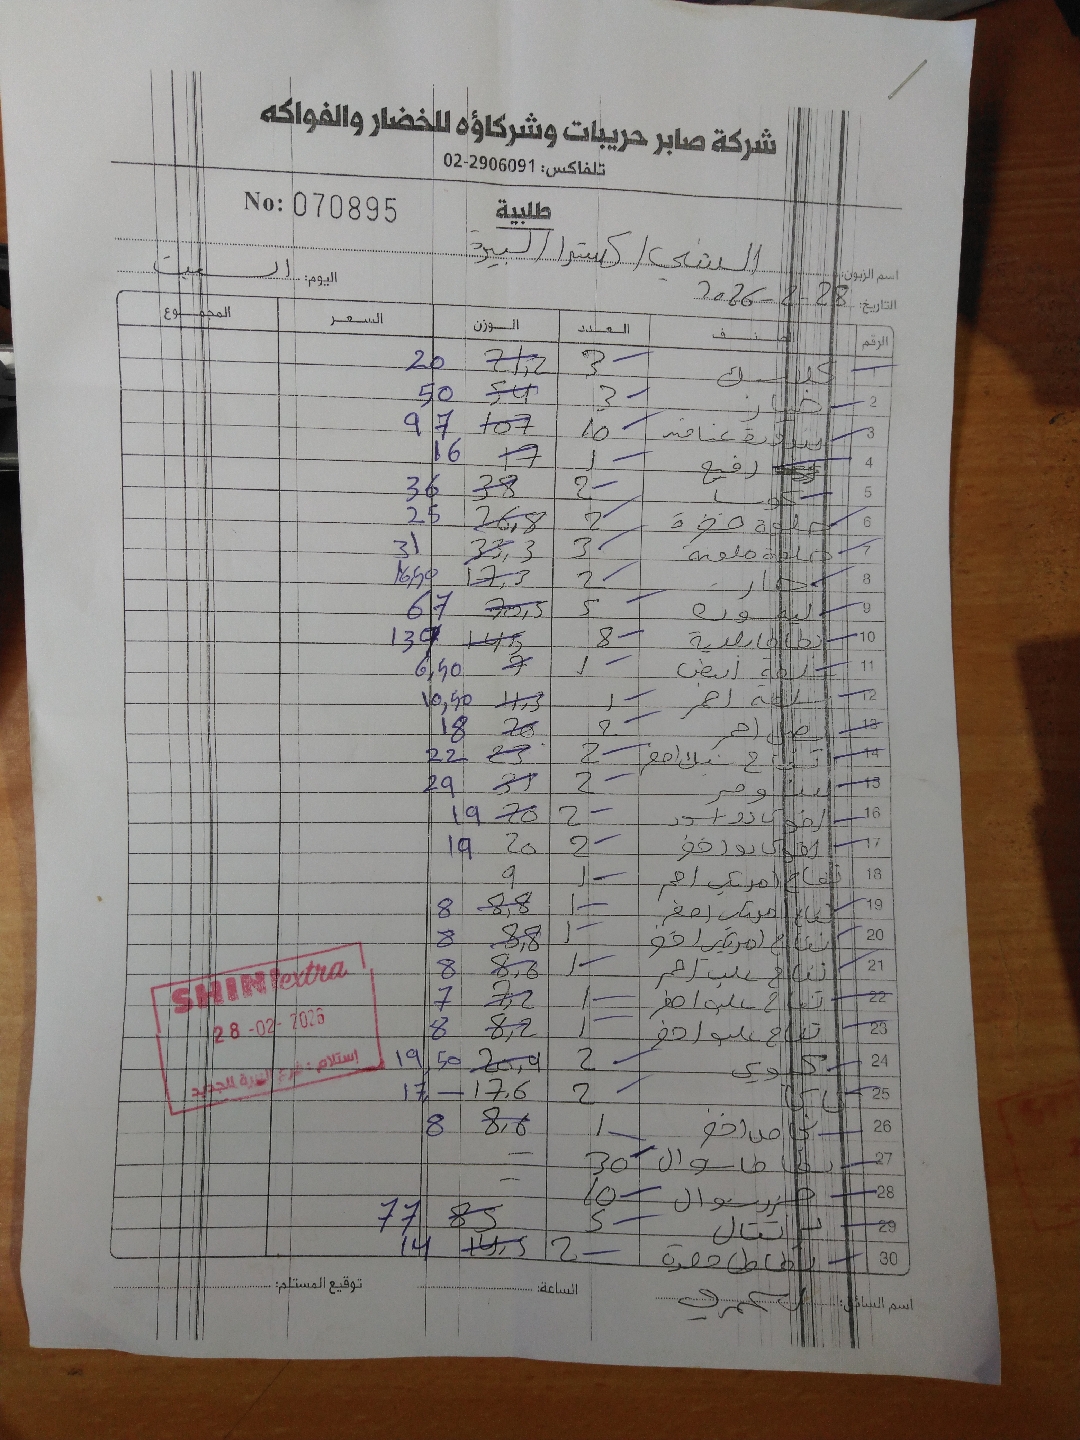 شركة صابر حريبات وشركاؤه للخضار والفواكه
تلفاكس: 02-2906091
No: 070895
طلبية
اسم الزبون: الشني / اكسترا / البيرة
التاريخ: 28-2-2026
اليوم: السبت
الرقم الصنف العدد الوزن السعر المجموع
1 3 71,2 20
2 خيار 3 54 50
3 بندورة عناقيد 10 107 97
4 رفيع 1 17 16
5 كوسا 2 38 36
6 2 26,8 25
7 3 33,3 31
8 2 17,3 16,50
9 ليمون 5 70,5 67
10 بطاطا بلدية 8 145
11 أبيض 1 7 6,50
12 احمر 1 11,3 10,50
13 بصل احمر 2 20 18
14 تفاح 2 23 22
15 2 31 29
16 2 20 19
17 2 20 19
18 تفاح امريكي احمر 1 9
19 تفاح امريكي اصفر 1 8,8 8
20 تفاح امريكي اخضر 1 8,8 8
21 تفاح علب احمر 1 8,6 8
22 تفاح علب اصفر 1 7,2 7
23 تفاح علب اخضر 1 8,2 8
24 كيوي 2 20,9 19,50
25 2 17,6 17
26 اخضر 1 8,6 8
27 بطاطا شوال 30 –
28 جزر شوال 10 –
29 برتقال 5 85 77
30 بطاطا 2 14,5 14
SHINI extra
28-02-2026
استلام: فرع البيرة الجديد
اسم السائق:
الساعة:
توقيع المستلم: